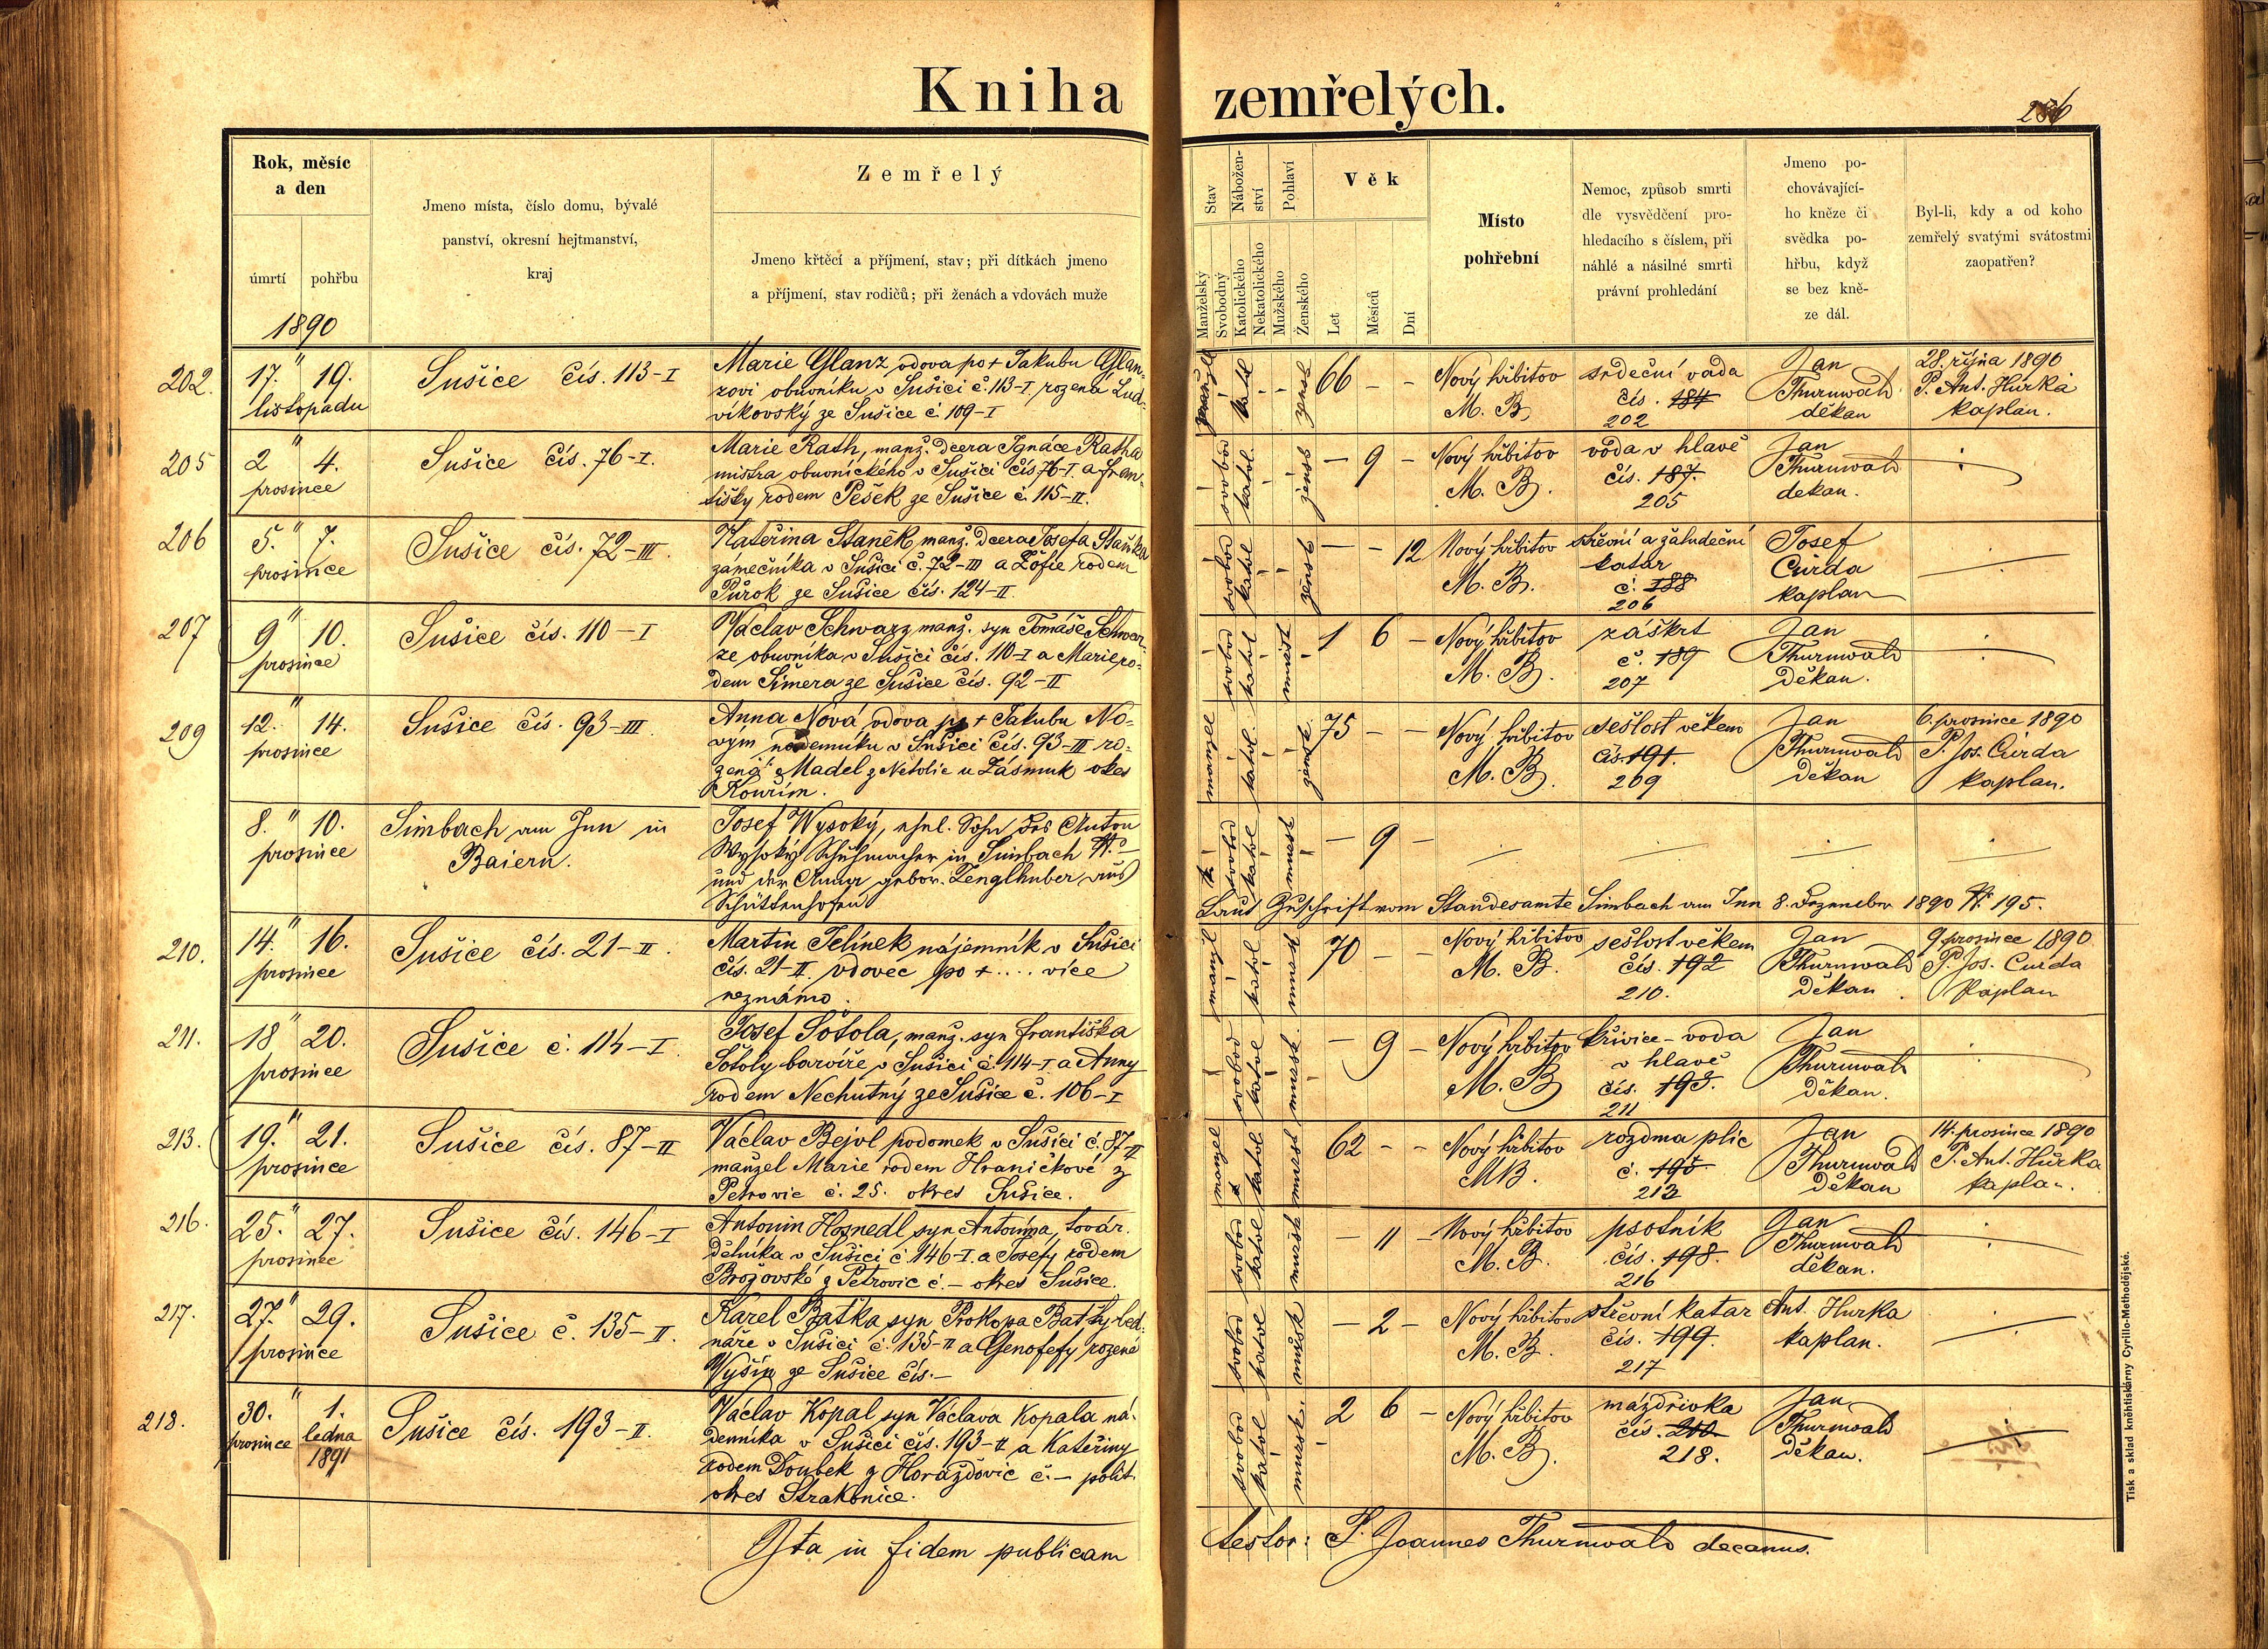 Kniha zemřelých.
286
Rok, měsíc
a den
úmrtí
pohřbu
1890
Jmeno místa, číslo domu, bývalé
panství, okresní hejtmanství,
kraj
Zemřelý
Jmeno křtěcí a příjmení, stav; při dítkách jmeno
a příjmení, stav rodičů; při ženách a vdovách muže
Stav
Manželský
Svobodný
Nábožen-
ství
Katolického
Nekatolického
Pohlaví
Mužského
Ženského
Věk
Let
Měsíců
Dní
Místo
pohřební
Nemoc, způsob smrti
dle vysvědčení pro-
hledacího s číslem, při
náhlé a násilné smrti
právní prohledání
Jmeno po-
chovávající-
ho kněze či
svědka po-
hřbu, když
se bez kně-
ze dál.
Byl-li, kdy a od koho
zemřelý svatými svátostmi
zaopatřen?
202.
17. " 19.
listopadu
Sušice čís. 113-I
Marie Glanz, vdova po + Jakubu Glan-
zovi obuvníku v Sušici č. 113-I. rozená Lud-
víkovský ze Sušice č. 109-I
katol
žensk
66 - -
Nový hřbitov
M. B.
srdeční vada
čís. 184
202
Jan
Thurnwald
děkan
28. října 1890
P. Ant. Hůrka
kaplan.
205
2 " 4.
prosince
Sušice čís. 76-I.
Marie Rath, manž. dcera Ignáce Ratha
mistra obuvnického v Sušici čís 76-I. a Fran-
tišky rodem Pešek ze Sušice č. 115-II.
svobod
katol.
žensk
- 9 -
Nový hřbitov
M. B.
voda v hlavě
čís. 187.
205
Jan
Thurnwald
děkan.
206
5. " 7.
prosince
Sušice čís. 72-III.
Kateřina Staněk, manž. dcera Josefa Staňka
zámečníka v Sušici č. 72-III a Žofie rodem
Půrok ze Sušice čís. 124-II.
svobod
katol
žensk
- - 12
Nový hřbitov
M. B.
střevní a žaludeční
katar
č. 188
206
Josef
Čurda
kaplan
207
9 " 10.
prosince
Sušice čís. 110-I
Václav Schwarz, manž. syn Tomáše Schwar-
ze obuvníka v Sušici čís. 110-I a Marie ro-
dem Šimera ze Sušice čís. 92-II
svobod
katol
mužsk
1 6 -
Nový hřbitov
M. B.
záškrt
č. 189
207
Jan
Thurnwald
Děkan.
209
12. " 14.
prosince
Sušice čís. 93-III.
Anna Nová, vdova po + Jakubu No-
vým nádenníku v Sušici čís. 93-III ro-
zená Madel z Netolic u Zásmuk okres
Kouřim.
manžel
katol.
žensk.
75 - -
Nový hřbitov
M. B.
sešlost věkem
čís. 191.
209
Jan
Thurnwald
Děkan
6. prosince 1890
P. Jos. Čurda
kaplan.
8. " 10.
prosince
Simbach am Inn in
Baiern.
Josef Wysoký, ehel. Sohn des Anton
Wysoký Schuhmacher in Simbach № -
und der Anna gebor. Zenglhuber aus
Schüttenhofen
svobod
katol
mužsk
- 9 -
Laut Zuschrift vom Standesamte Simbach am Inn 8. Dezember 1890 № 195.
210.
14. " 16.
prosince
Sušice čís. 21-II.
Martin Jelínek nájemník v Sušici
čís. 21-II. vdovec po + .... více
neznámo.
manžel
katol
mužsk
70 - -
Nový hřbitov
M. B.
sešlost věkem
čís. 192
210.
Jan
Thurnwald
Děkan
9. prosince 1890
P. Jos. Čurda
Kaplan
211.
18 " 20.
prosince
Sušice č. 114-I.
Josef Šotola, manž. syn Františka
Šotoly barvíře v Sušici č. 114-I. a Anny
rodem Nechutný ze Sušice č. 106-I
svobod
katol
mužsk.
- 9 -
Nový hřbitov
M. B.
křivice - voda
v hlavě
čís. 193.
211
Jan
Thurnwald
Děkan.
213.
19. " 21.
prosince
Sušice čís. 87-II
Václav Bejvl podomek v Sušici č. 87-II
manžel Marie rodem Hraničkové z
Petrovic č. 25. okres Sušice.
manžel
katol
mužsk
62 - -
Nový hřbitov
MB.
rozdma plic
č. 195
213
Jan
Thurnwald
Děkan
14. prosince 1890
P. Ant. Hůrka
kaplan.
216.
25. " 27.
prosince
Sušice čís. 146-I
Antonín Hosnedl, syn Antonína, továr.
dělníka v Sušici č. 146-I. a Josefy rodem
Brožovské z Petrovic č. - okres Sušice.
svobod
katol
mužsk
- 11 -
Nový hřbitov
M. B.
psotník
čís. 198.
216
Jan
Thurnwald
děkan.
217.
27. " 29.
prosince
Sušice č. 135-II.
Karel Baťka, syn Prokopa Baťky led-
náře v Sušici č. 135-II a Genofefy rozené
Vyšín ze Sušice čís. -
svobod
katol
mužsk
- 2 -
Nový hřbitov
M. B.
střevní katar
čís. 199.
217
Ant. Hurka
kaplan.
218.
30. " 1.
prosince ledna
1891
Sušice čís. 193-II.
Václav Kopal, syn Václava Kopala ná-
denníka v Sušici čís. 193-II a Kateřiny
rodem Doubek z Horažďovic č. - polit.
okres Strakonice.
svobod
katol
mužsk.
2 6 -
Nový hřbitov
M. B.
mázdřivka
čís. 210
218.
Jan
Thurnwald
Děkan.
Ita in fidem publicam
testor: P. Joannes Thurnwald decanus.
Tisk a sklad kněhtiskárny Cyrillo-Methodějské.